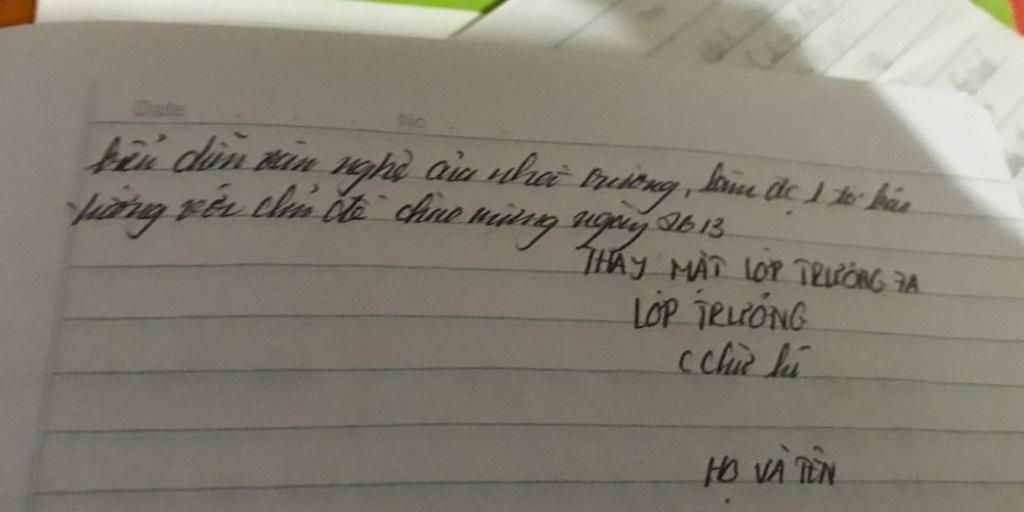 Date No
biểu diễn văn nghệ của nhà trường, làm đc 1 tờ báo
tường với chủ đề chào mừng ngày 26/3
THAY MẶT LỚP TRƯỞNG 7A
LỚP TRƯỞNG
(Chữ kí
HỌ VÀ TÊN